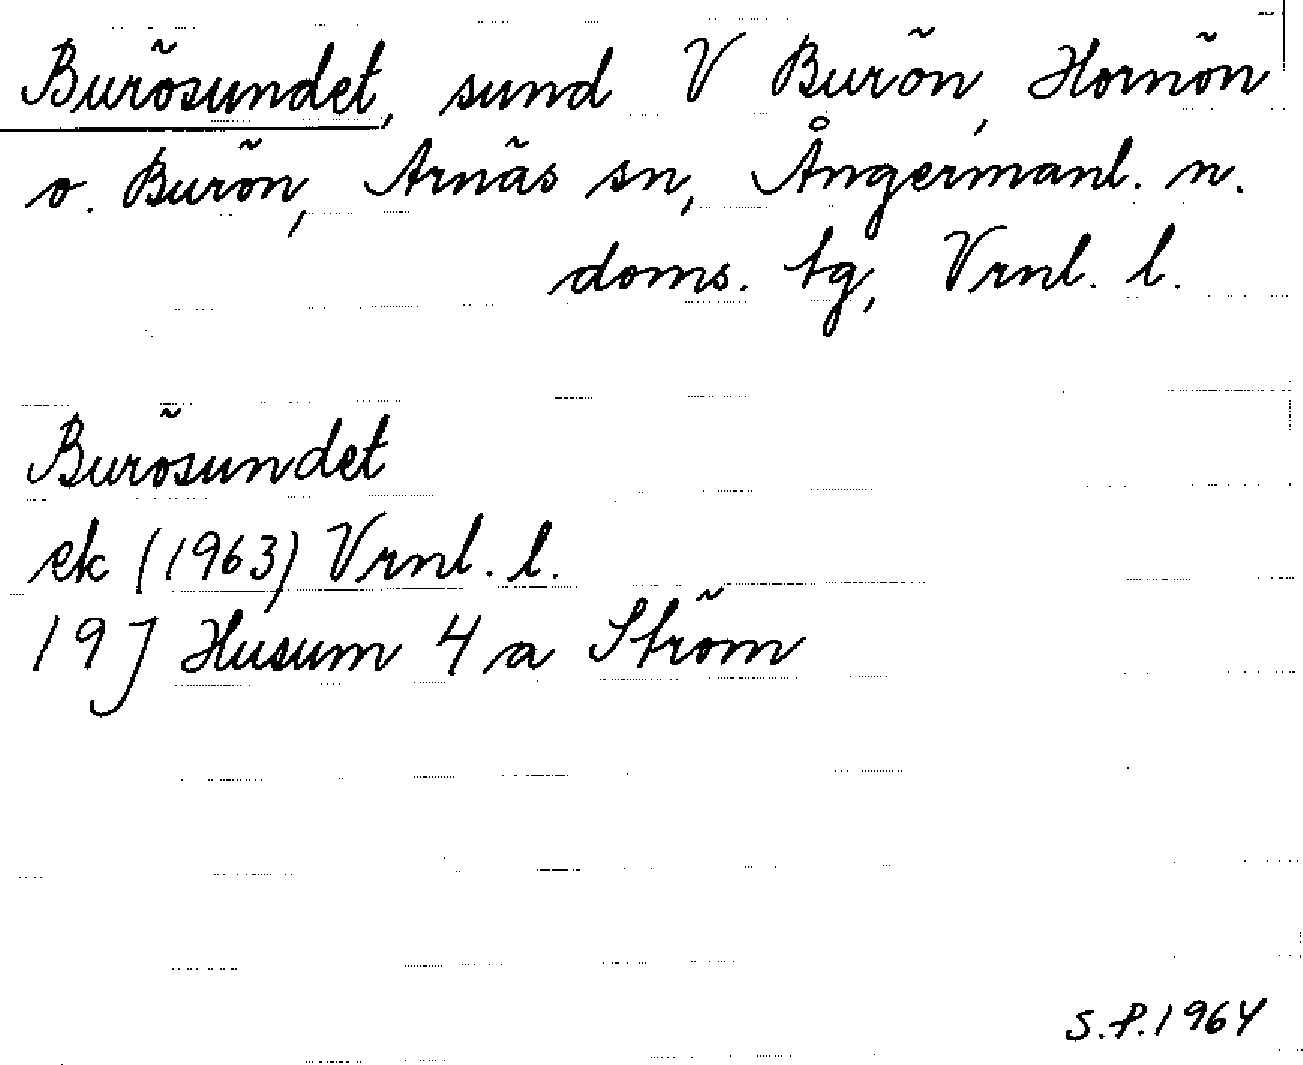 Burösundet, sund V Burön, Hornön
o. Burön, Arnäs sn, Ångermanl. n.
doms. tg, Vrnl. l.
Burösundet
ek (1963) Vrnl. l.
19J Husum 4 a Ström
S.P.1964